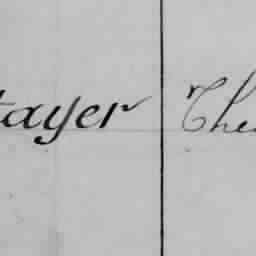 tayer The